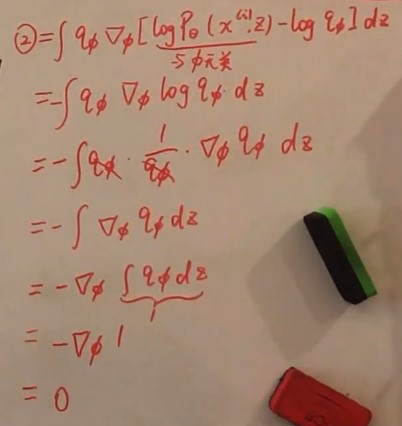 ② = ∫ qϕ ∇ϕ [log Pθ(x⁽ⁱ⁾,z) - log qϕ] dz
与ϕ无关
= -∫ qϕ ∇ϕ log qϕ dz
= -∫ qϕ · 1/qϕ · ∇ϕ qϕ dz
= -∫ ∇ϕ qϕ dz
= -∇ϕ ∫ qϕ dz
1
= -∇ϕ 1
= 0